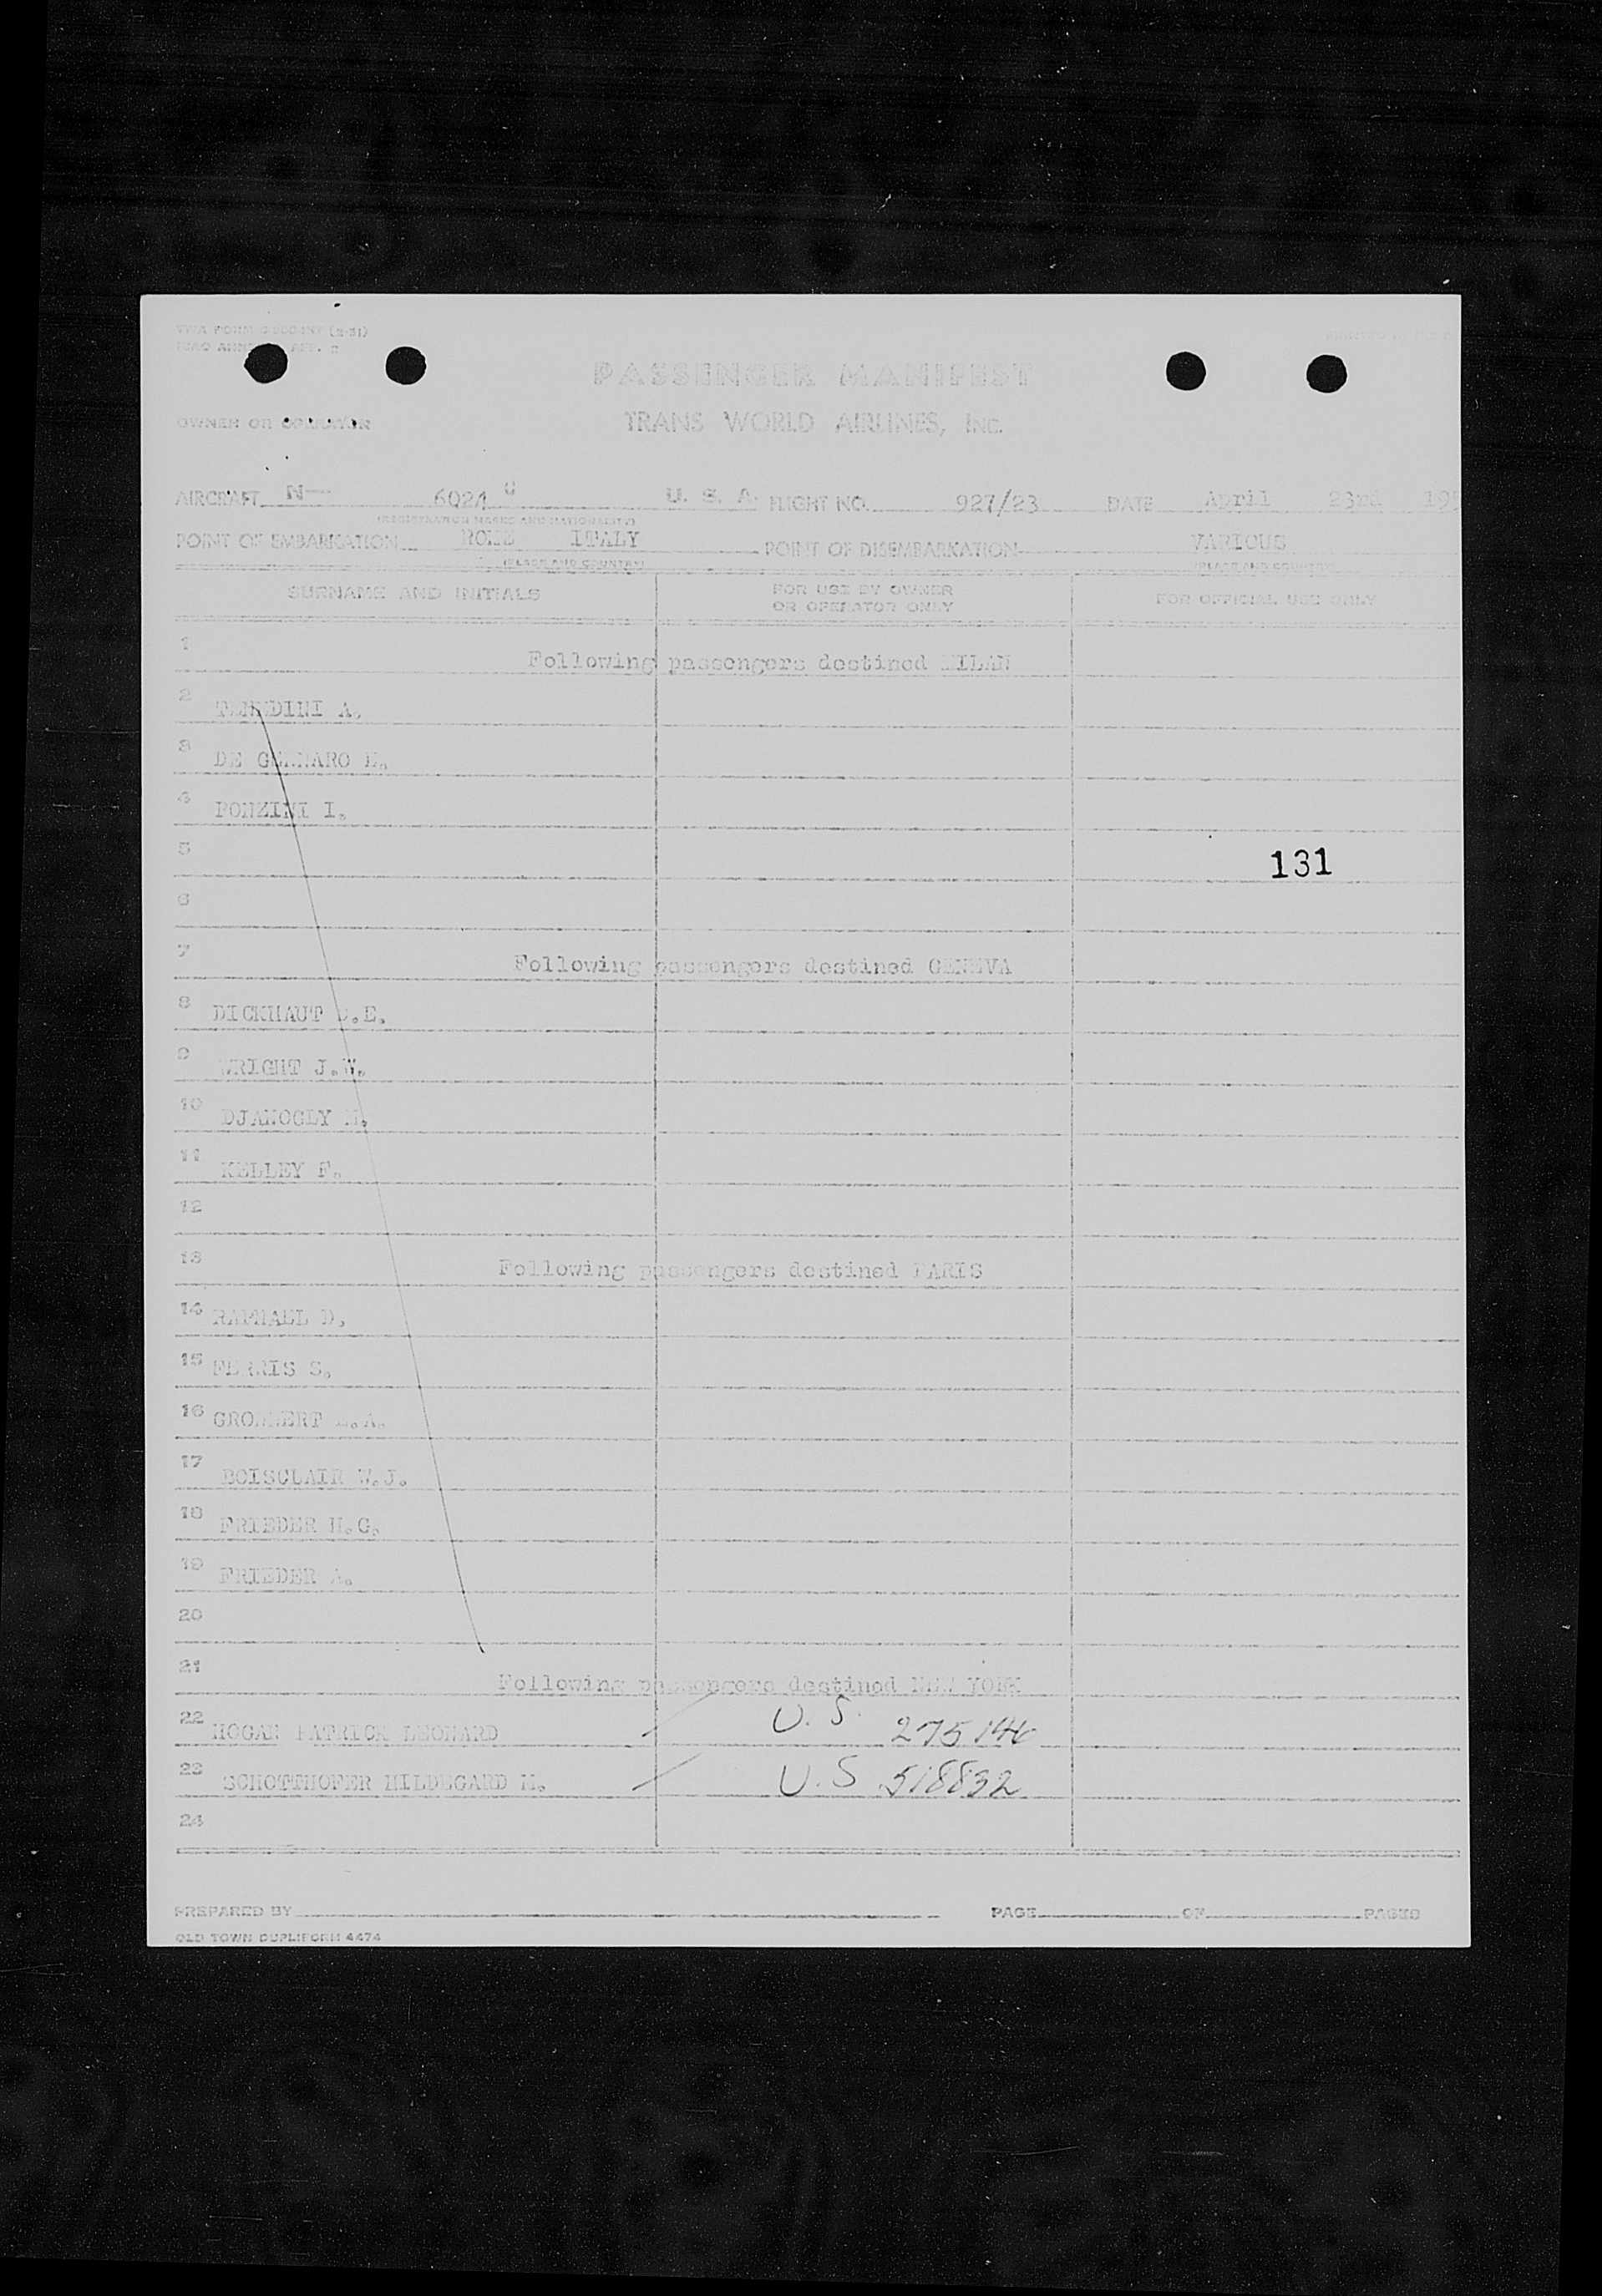 PASSENGER MANIFEST
OWNER OR OPERATOR TRANS WORLD AIRLINES, INC.
AIRCRAFT N— 6024 C U. S. A. FLIGHT NO. 927/23 DATE April 23rd 195
(REGISTRATION MARKS AND NATIONALITY)
POINT OF EMBARKATION ROME ITALY POINT OF DISEMBARKATION VARIOUS
(PLACE AND COUNTRY) (PLACE AND COUNTRY)
SURNAME AND INITIALS FOR USE BY OWNER OR OPERATOR ONLY FOR OFFICIAL USE ONLY
1 Following passengers destined MILAN
2 A.
3 DE GENNARO
4 PONZINI I.
5 131
6
7 Following passengers destined GENEVA
8 DICKHAUT
9 WRIGHT J.W.
10 DJANOGLY
11 KELLEY F.
12
13 Following passengers destined PARIS
14 RAPHAEL D.
15 FERRIS S.
16
17 BOISCLAIR W.J.
18 FRIEDER H.G.
19 FRIEDER A.
20
21 Following passengers destined NEW YORK
22 HOGAN PATRICK LEONARD U.S. 275146
23 SCHOTTHOFER HILDEGARD M. U.S 518832
24
PREPARED BY PAGE OF PAGES
OLD TOWN DUPLIFORM 4474